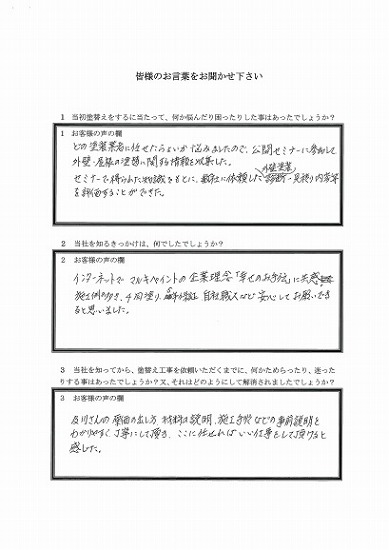 皆様のお言葉をお聞かせ下さい
1 当初塗替えをするに当たって、何か悩んだり困ったりした事はあったでしょうか？
1 お客様の声の欄
どの塗装業者に任せたらよいか悩みましたので、公開セミナーに参加して
外壁・屋根の塗替に関する情報を収集した。
外壁塗装
セミナーで得られた知識をもとに、数社に依頼した診断・見積り内容等
を評価することができた。
2 当社を知るきっかけは、何でしたでしょうか？
2 お客様の声の欄
インターネットで マルキペイントの企業理念「幸せのお手伝」に共感
施工例の多さ、4回塗り、保証 自社職人など 安心してお願いでき
ると思いました。
3 当社を知ってから、塗替え工事を依頼いただくまでに、何かためらったり、迷った
りする事はあったでしょうか？又、それはどのようにして解消されましたでしょうか？
3 お客様の声の欄
及川さんの 見積の出し方、材料の説明、施工手順 などの事前説明を
わかりやすく 丁寧にして頂き、ここに任せれば いい仕事をして頂けると
感じた。